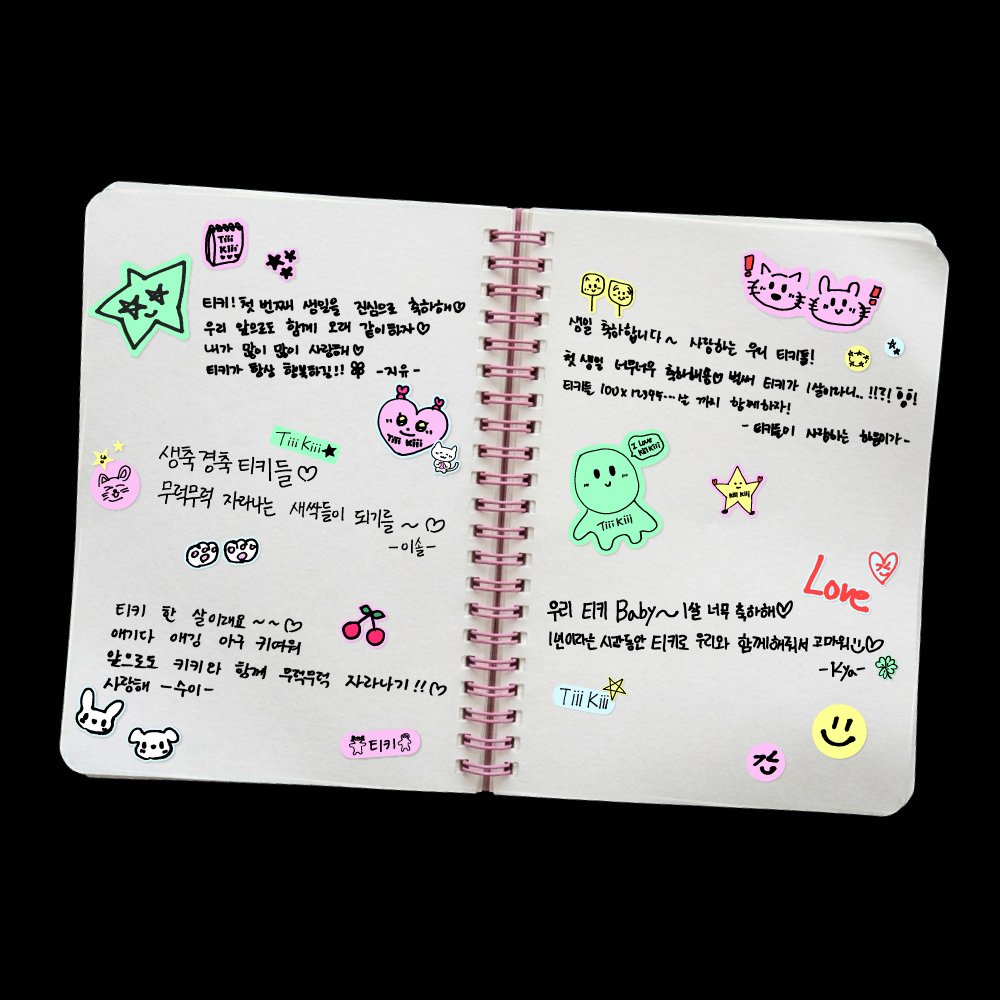 Tiii
Kiii
티키! 첫 번째 생일을 진심으로 축하해♡
우리 앞으로도 함께 오래 같이하자♡
내가 많이 많이 사랑해♡
티키가 항상 행복하길!! -지유-
Tiii Kiii
Tiii Kiii★
생축경축 티키들♡
무럭무럭 자라나는 새싹들이 되기를 ~♡
-이솔-
티키 한 살이래요~~♡
애기다 애깅 아구 키여워
앞으로도 키키랑 함께 무럭무럭 자라나기!!♡
사랑해 -수이-
티키
생일 축하합니다~ 사랑하는 우리 티키들!
첫 생일 너무너무 축하해용♡ 벌써 티키가 1살이라니..!!?!
티키들 100x12345...살 까지 함께하자!
- 티키들이 사랑하는 하음이가-
I Love
KiiiKiii
Tiii Kiii
Tiii Kiii
Love
우리 티키 Baby~ 1살 너무 축하해♡
1년이라는 시간동안 티키로 우리와 함께해줘서 고마워♡
-Kya-
Tiii Kiii